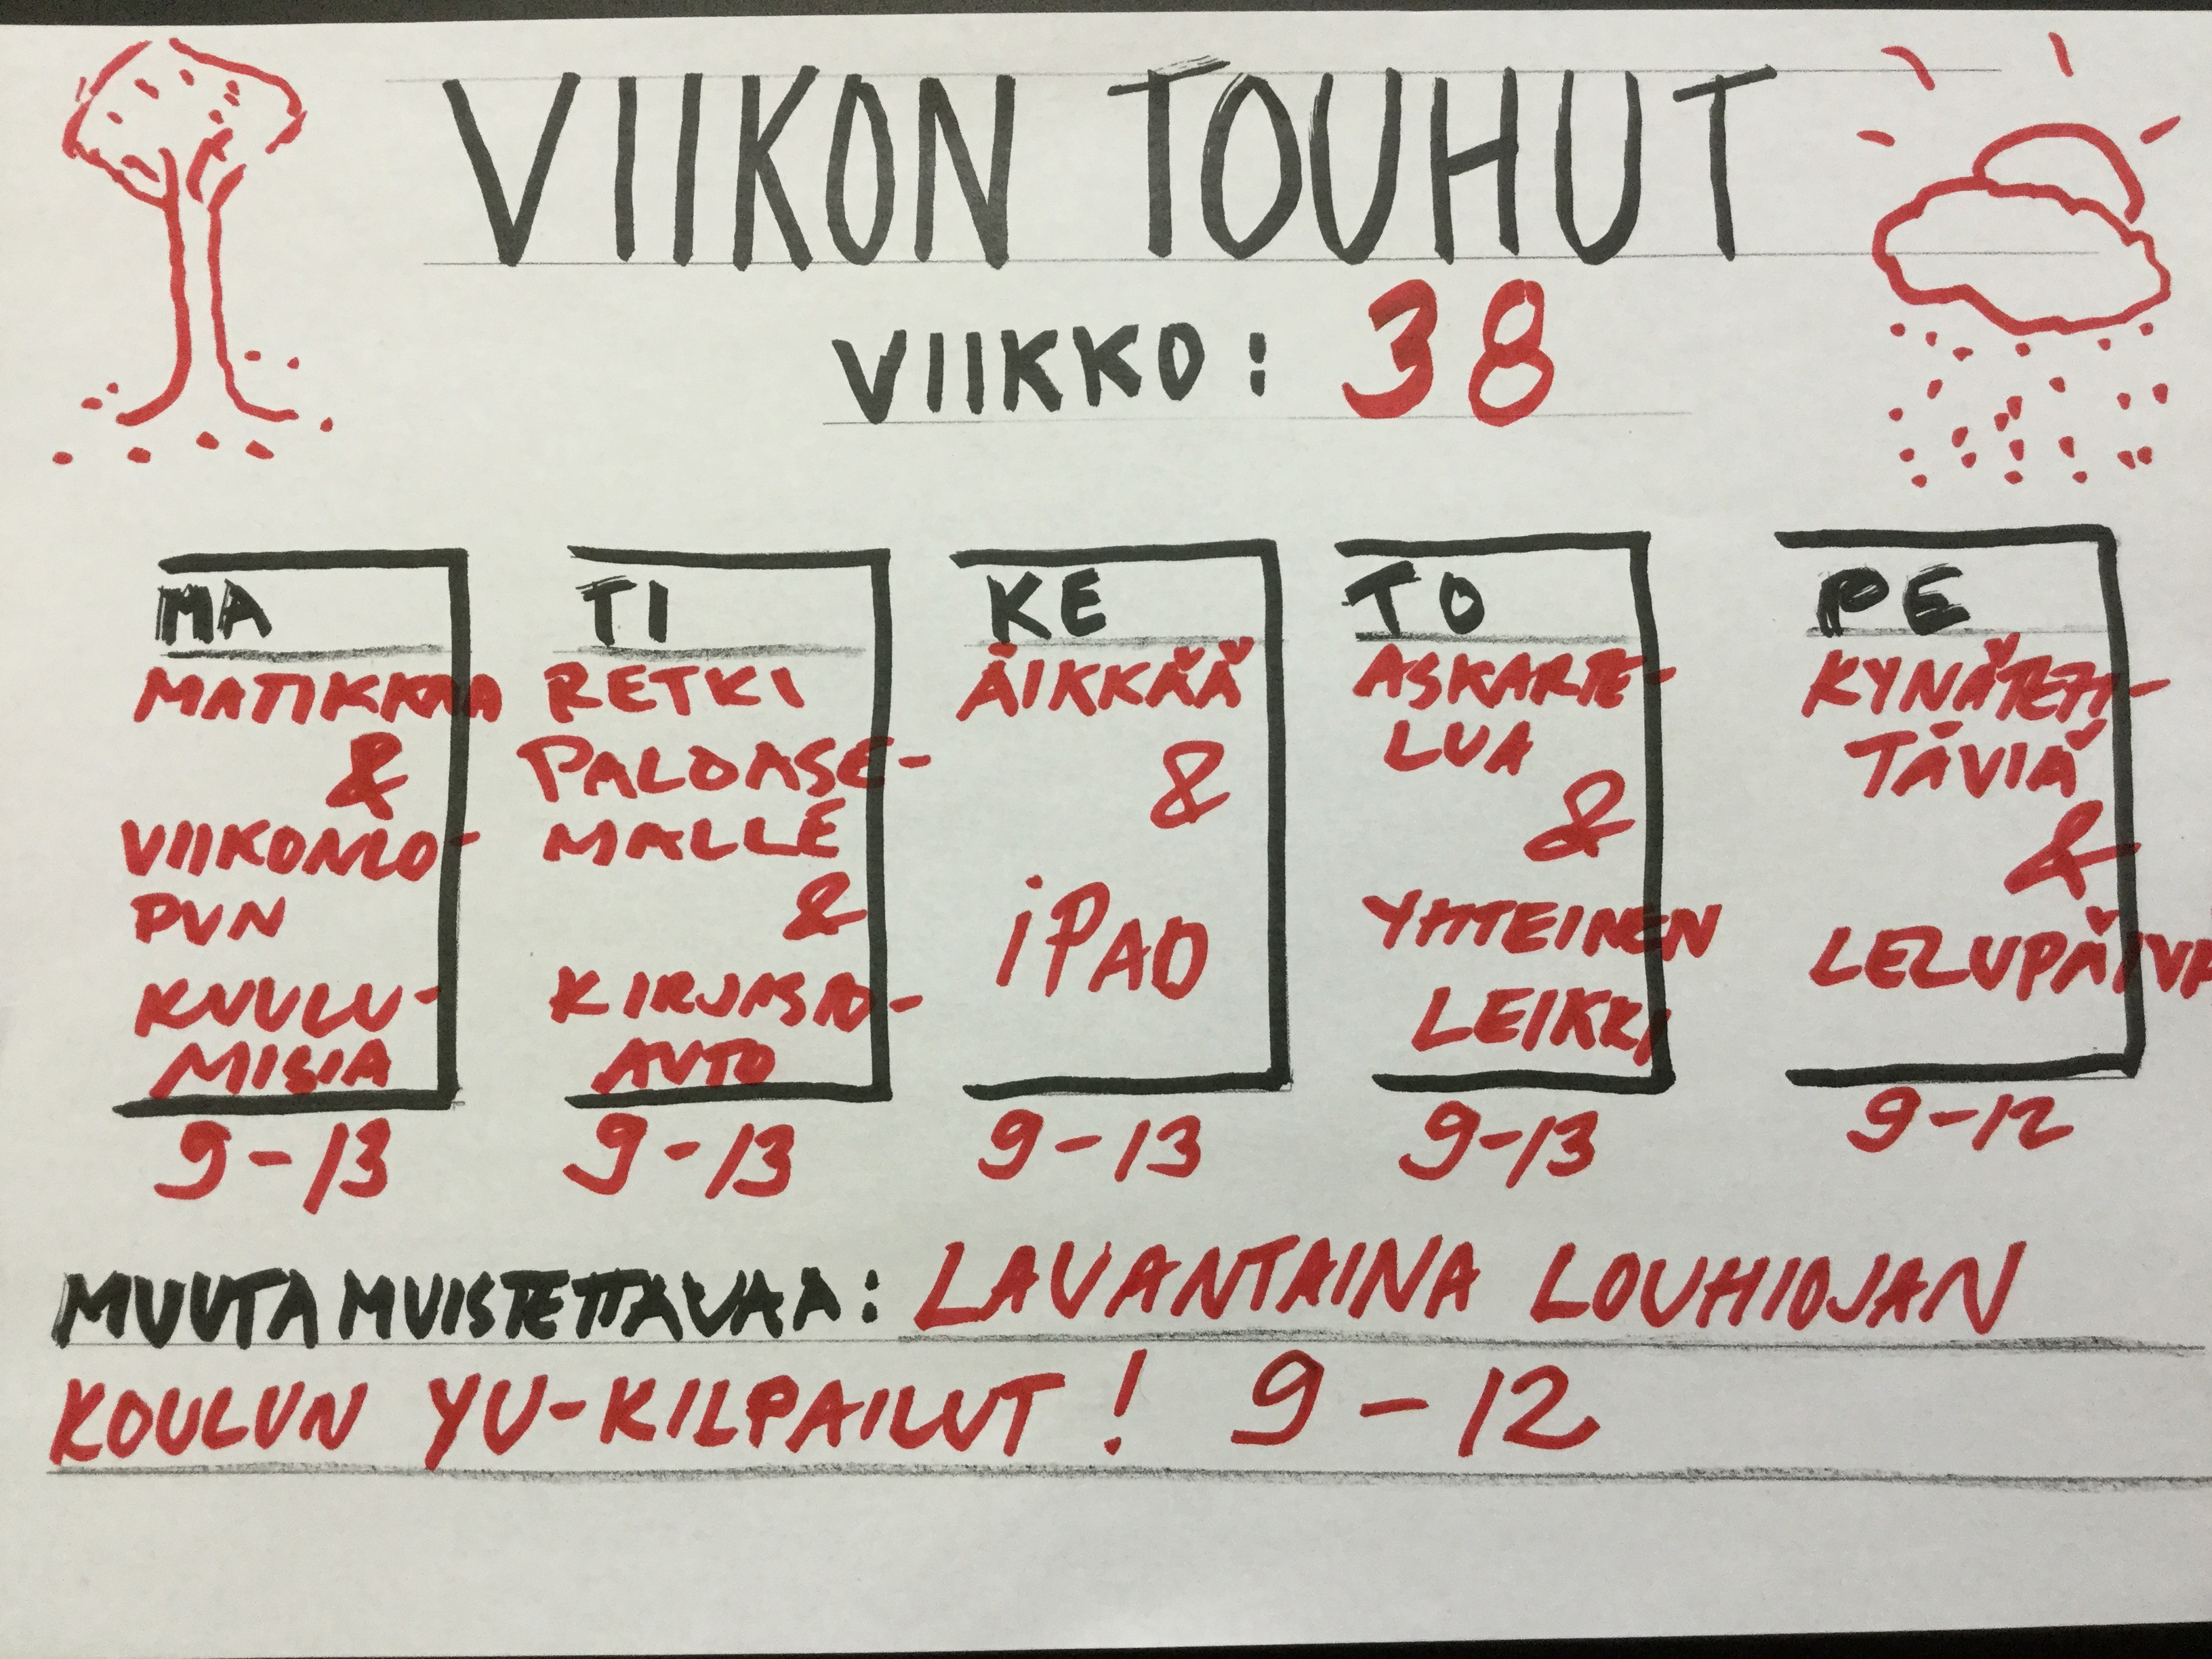 VIIKON TOUHUT
VIIKKO: 38
MA
MATIKKAA
&
VIIKONLO-
PUN
KUULU-
MISIA
9-13
TI
RETKI
PALOASE-
MALLE
&
KIRJASTO-
AUTO
9-13
KE
ÄIKKÄÄ
&
iPAD
9-13
TO
ASKARTE-
LUA
&
YHTEINEN
LEIKKI
9-13
PE
KYNÄTEH-
TÄVIÄ
&
LELUPÄIVÄ
9-12
MUUTA MUISTETTAVAA: LAUANTAINA LOUHIOJAN
KOULUN YU-KILPAILUT! 9-12